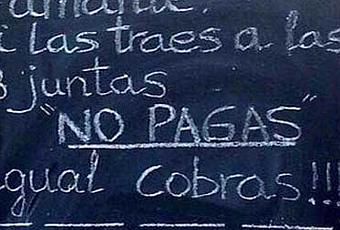 i las traes a las
3 juntas
"NO PAGAS"
igual cobras!!!